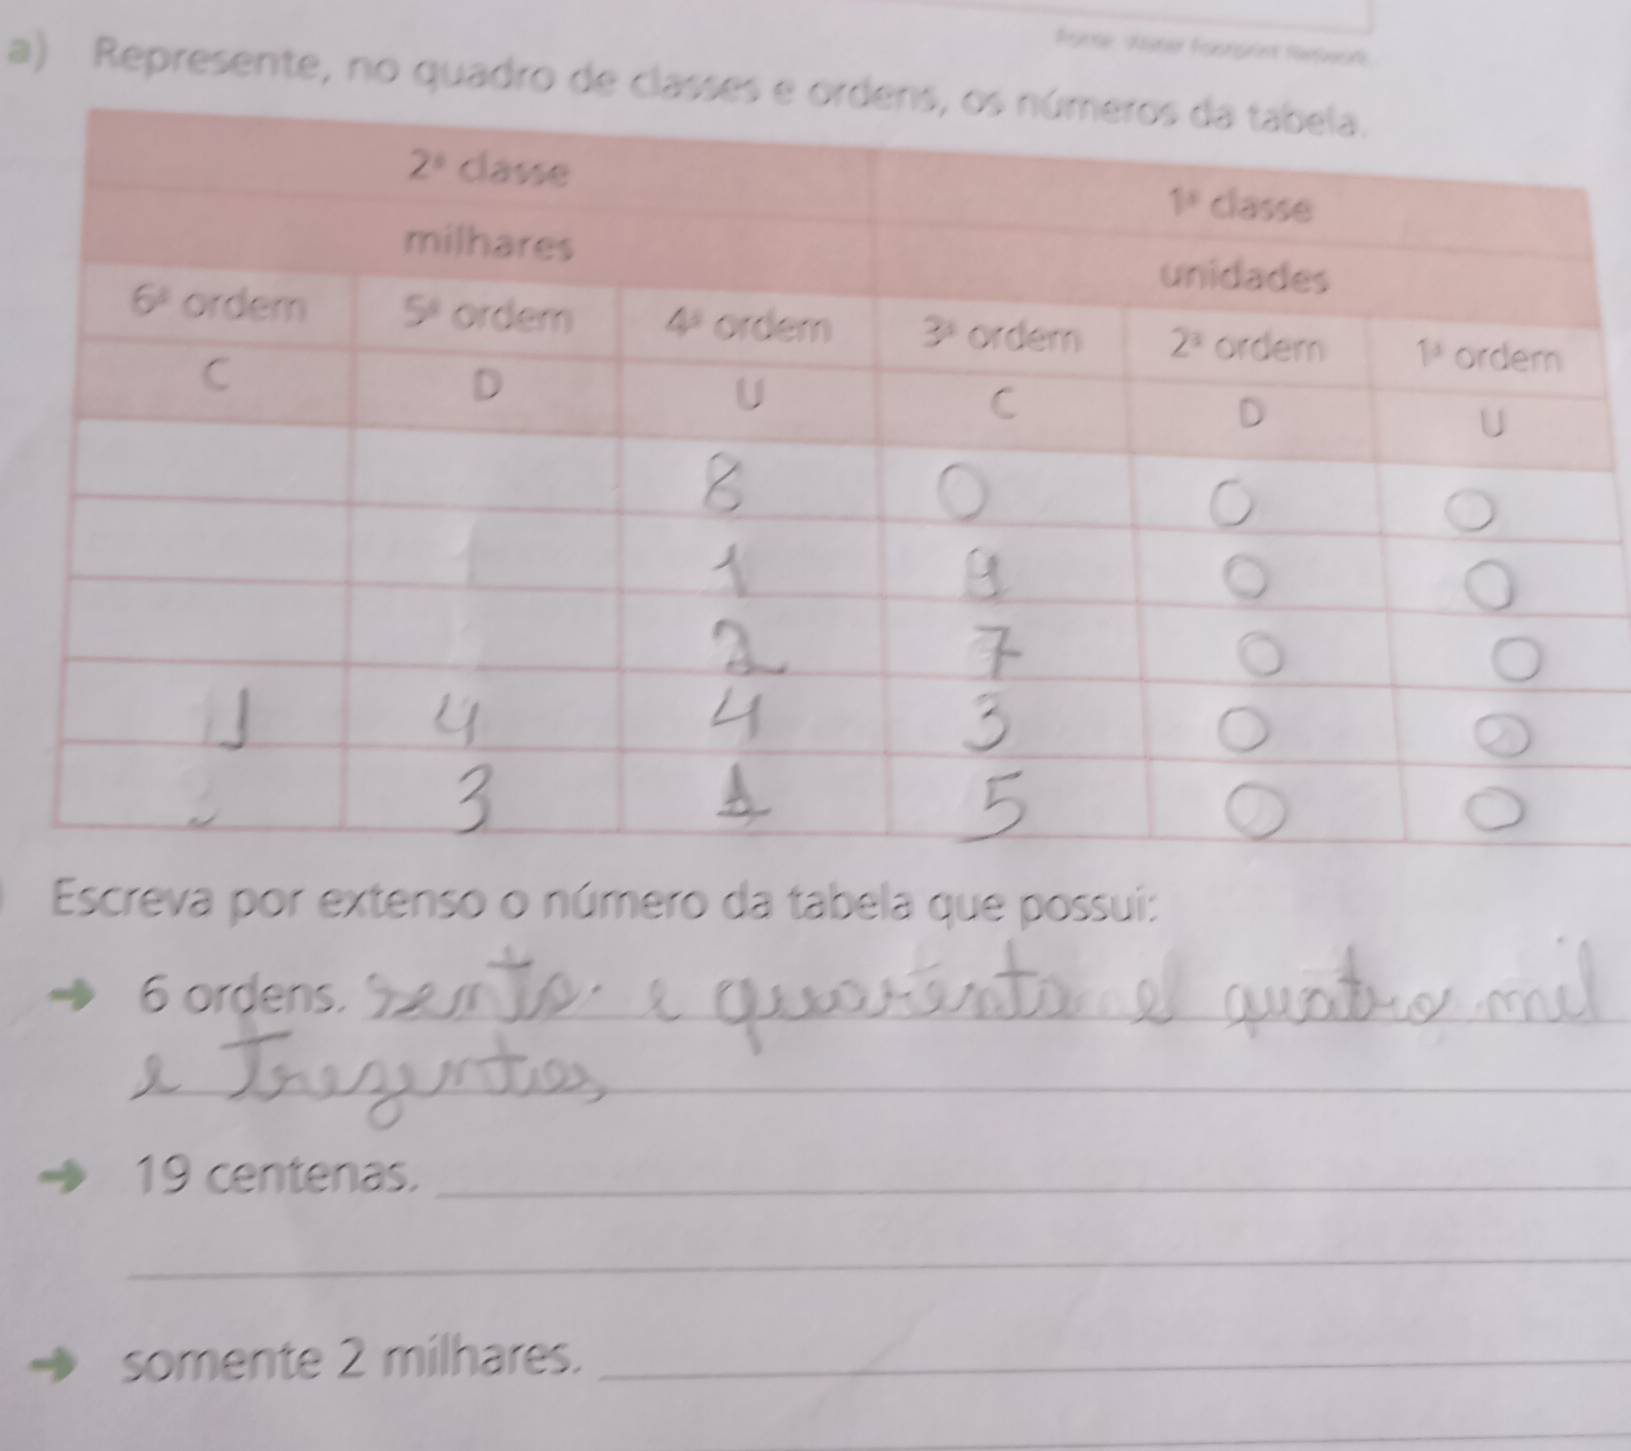 a) Represente, no quadro de classes e ordens, os números da tabela.
2ª classe 1ª classe
milhares unidades
6ª ordem 5ª ordem 4ª ordem 3ª ordem 2ª ordem 1ª ordem
C D U C D U
8 0 0 0
1 9 0 0
2 7 0 0
1 4 4 3 0 0
3 1 5 0 0
Escreva por extenso o número da tabela que possui:
6 ordens. sento e quarenta e quatro mil
e tregentos
19 centenas.
somente 2 milhares.